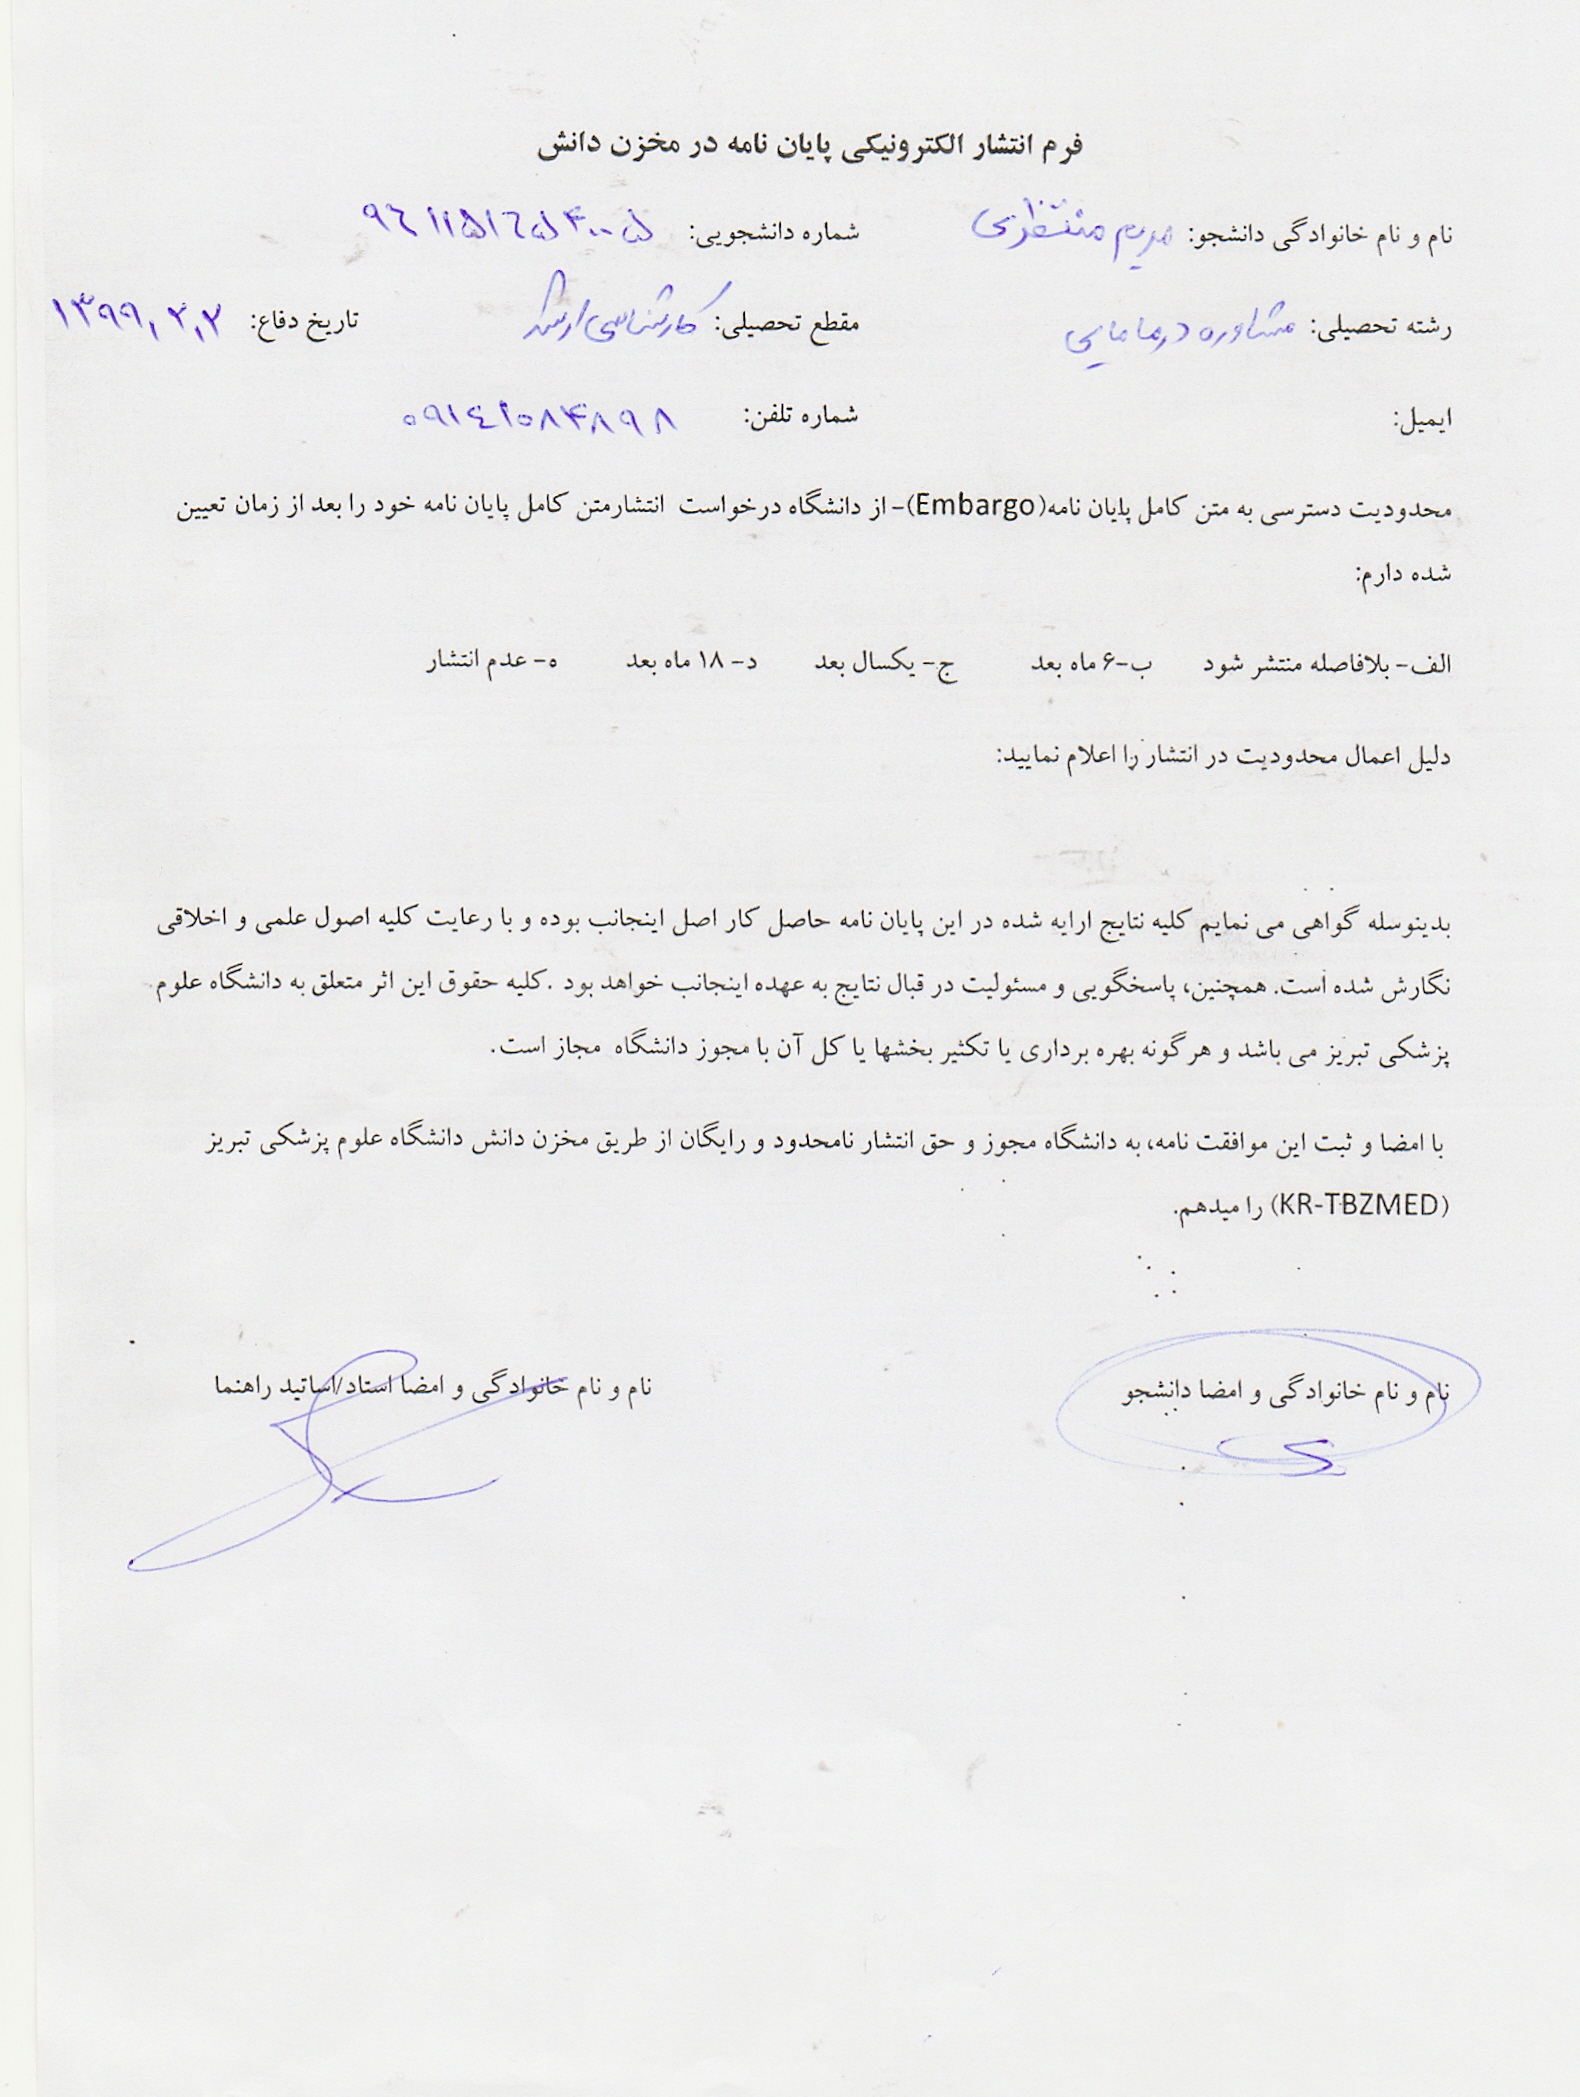 فرم انتشار الکترونیکی پایان نامه در مخزن دانش
نام و نام خانوادگی دانشجو: مریم منتظری شماره دانشجویی:
رشته تحصیلی: مشاوره در مامایی مقطع تحصیلی: کارشناسی ارشد تاریخ دفاع: ۱۳۹۹,۲,۲
ایمیل: شماره تلفن: ۰۹۱۴۱۰۸۴۸۹۸
محدودیت دسترسی به متن کامل پایان نامه(Embargo)- از دانشگاه درخواست انتشارمتن کامل پایان نامه خود را بعد از زمان تعیین
شده دارم:
الف- بلافاصله منتشر شود ب-۶ ماه بعد ج- یکسال بعد د- ۱۸ ماه بعد ه- عدم انتشار
دلیل اعمال محدودیت در انتشار را اعلام نمایید:
بدینوسله گواهی می نمایم کلیه نتایج ارایه شده در این پایان نامه حاصل کار اصل اینجانب بوده و با رعایت کلیه اصول علمی و اخلاقی
نگارش شده است. همچنین، پاسخگویی و مسئولیت در قبال نتایج به عهده اینجانب خواهد بود .کلیه حقوق این اثر متعلق به دانشگاه علوم
پزشکی تبریز می باشد و هرگونه بهره برداری یا تکثیر بخشها یا کل آن با مجوز دانشگاه مجاز است.
با امضا و ثبت این موافقت نامه، به دانشگاه مجوز و حق انتشار نامحدود و رایگان از طریق مخزن دانش دانشگاه علوم پزشکی تبریز
(KR-TBZMED) را میدهم.
نام و نام خانوادگی و امضا دانشجو نام و نام خانوادگی و امضا استاد/اساتید راهنما